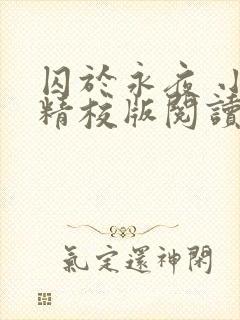 囚於永夜 小
精校版閱讀
氣定還神閑